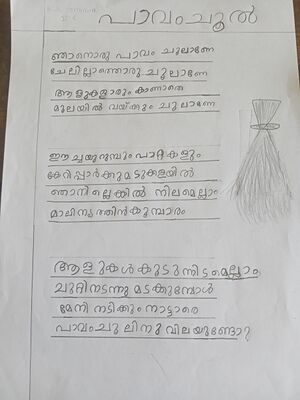 പാവംചൂൽ
ഞാനൊരു പാവം ചൂലാണേ
ചേലില്ലാത്തൊരു ചൂലാണേ
ആളുകളാരും കാണാതെ
മൂലയിൽ വയ്ക്കും ചൂലാണേ
ഈച്ചയുറുമ്പും പാറ്റകളും
കേറിപ്പാർക്കുമടുക്കളയിൽ
ഞാനില്ലെങ്കിൽ നിലമെല്ലാം
മാലിന്യത്തിൻകൂമ്പാരം
ആളുകൾ കൂടുന്നിടമെല്ലാം
ചുറ്റിനടന്നു മടക്കുമ്പോൾ
മേനി നടിക്കും നാട്ടാരെ
പാവംചൂലിനു വിലയുണ്ടോ